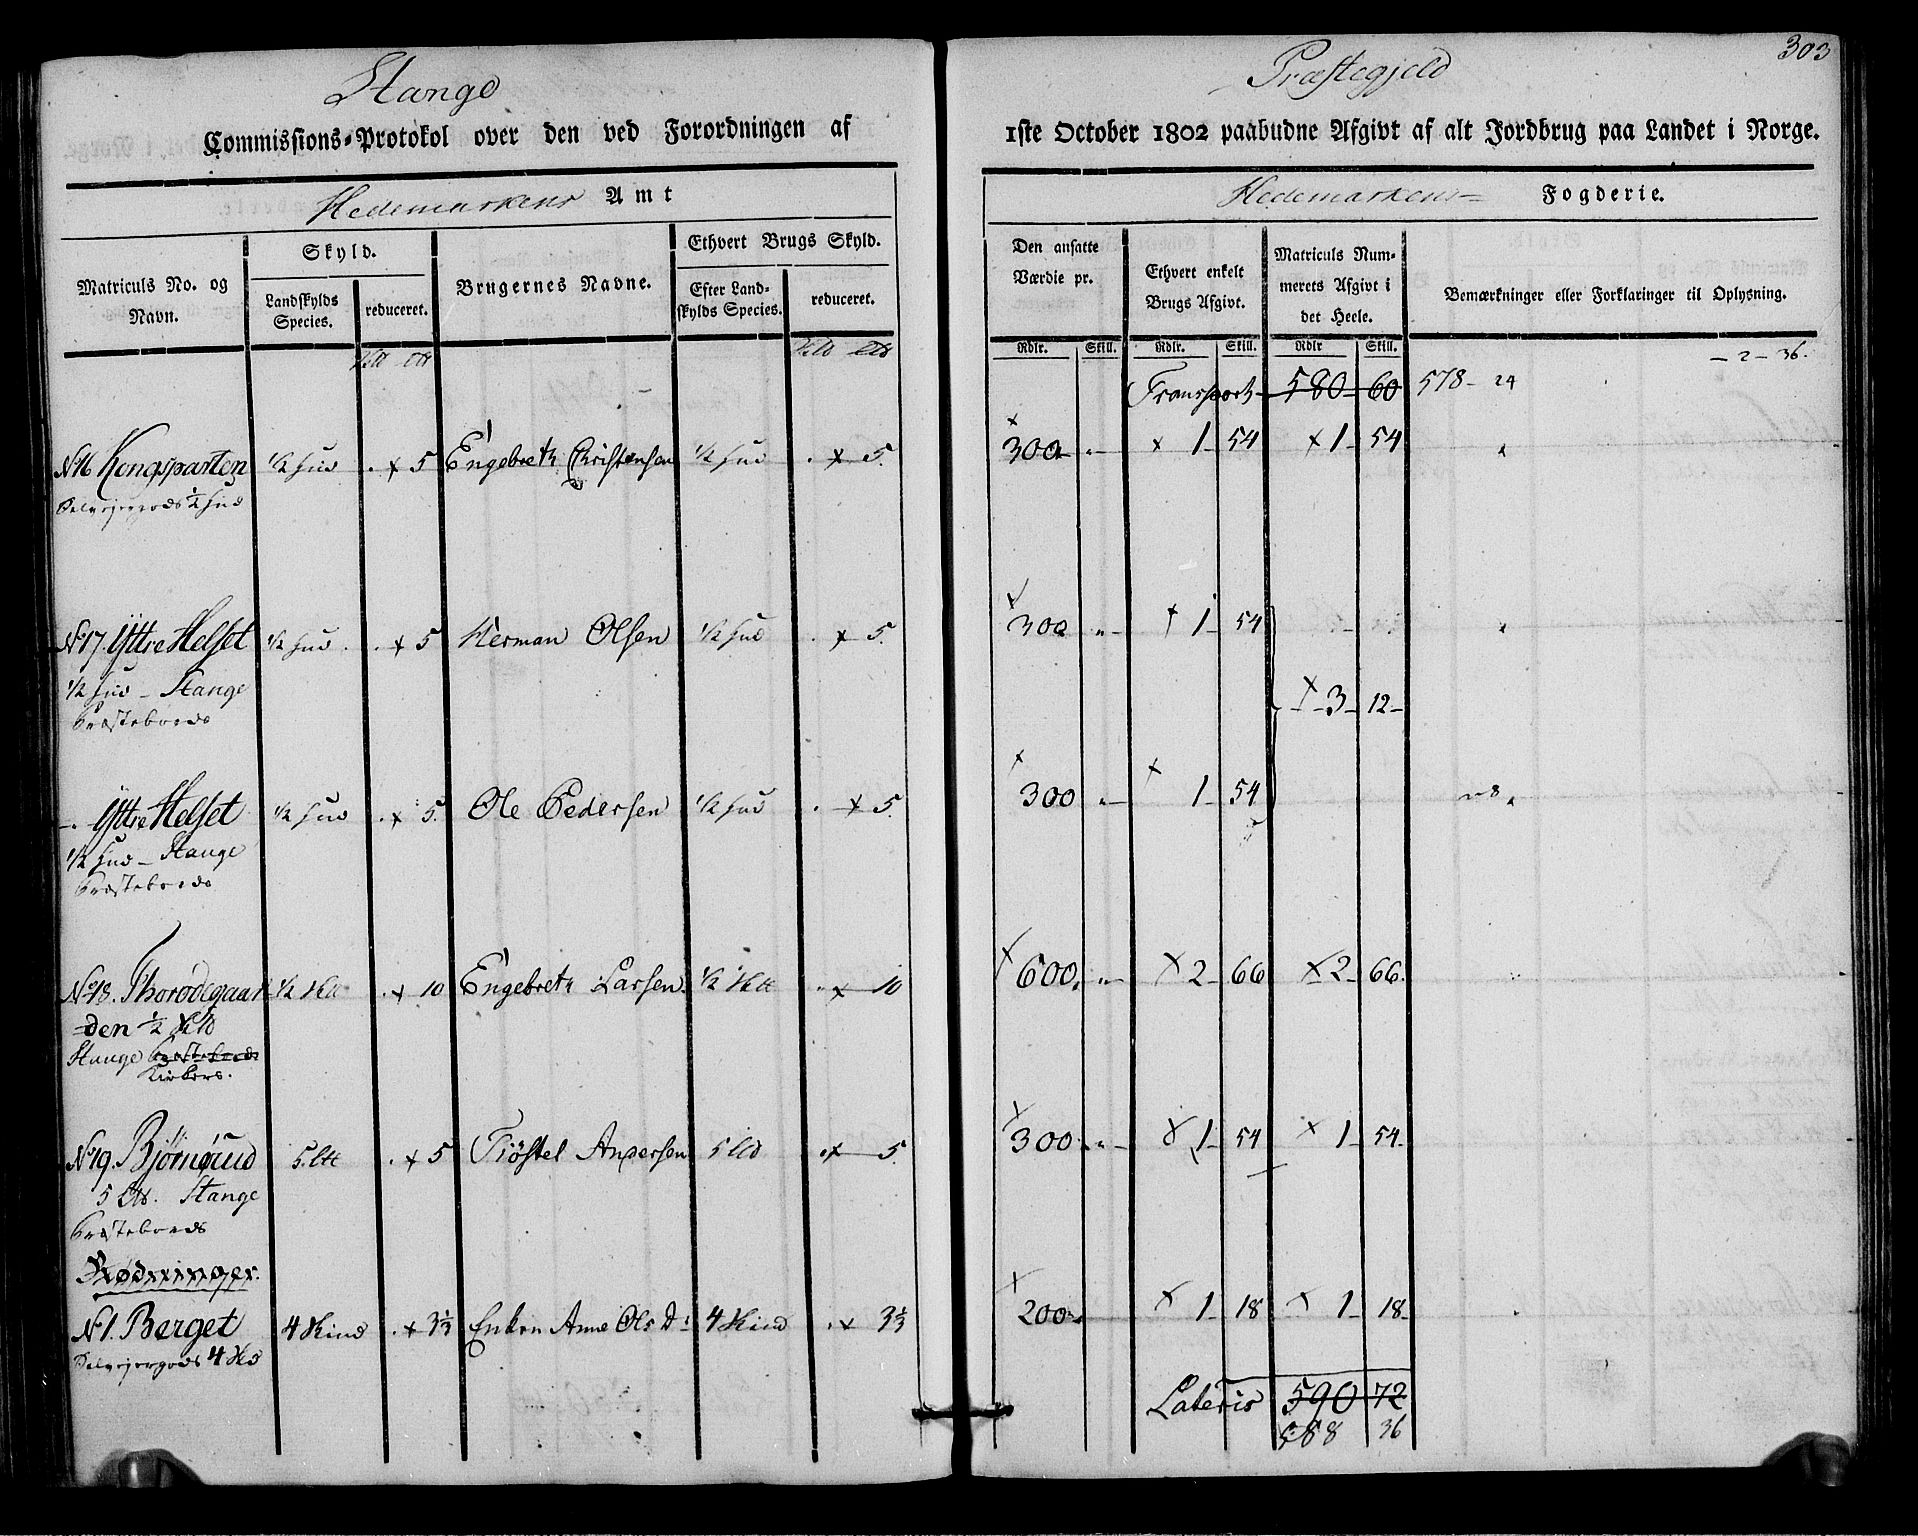 303
Stange Præstegjeld
Commissions-Protokol over den ved Forordningen af 1ste October 1802 paabudne Afgivt af alt Jordbrug paa Landet i Norge.
Hedemarkens Amt
Hedemarkens Fogderie.
Matriculs No. og Navn.
Skyld.
Landskylds Species.
reduceret.
Brugernes Navne.
Ethvert Brugs Skyld.
Efter Landskylds Species.
reduceret.
Den ansatte Værdie pr.
Ethvert enkelt Brugs Afgivt.
Matriculs Nummerets Afgivt i det Heele.
Bemærkninger eller Forklaringer til Oplysning.
Rdlr. Skill. Rdlr. Skill. Rdlr Skill.
– 2 – 36.
Transport 580 60 578 – 24
N16 Kongsparten 1/2 hud . x 5 Engebreth Christensen 1/2 hud . x 5. 300 „ x 1 54 x 1 54
Selvejergods 1/2 hud
N17. Yttre Helset 1/2 hud . x 5 Herman Olsen 1/2 hud . x 5. 300 „ 1 54
1/2 hud – Stange
Præstebords
x 3 12
Yttre Helset 1/2 hud . x 5. Ole Pedersen 1/2 hud . x 5. 300 „ x 1 54
1/2 hud – Stange
Præstebords
N18. Thorødegaar 1/2 . x 10 Engebreth Larsen 1/2 . x 10 600 „ x 2 66 x 2 66.
den 1/2
Stange Præstebords
Kirkens.
N19. Bjørnerud 5. . x 5 Tiøstel Andersen 5 . x 5. 300 „ 1 54 x 1 54
5 Stange
Præstebords
Rødninger.
N1. Berget 4 Skind . x 3 1/3 Enken Anne Olsd: 4 Skind . x 3 1/3 200 x 1 18 x 1 18
Selvejergods 4
Lateris 590 72
588 36